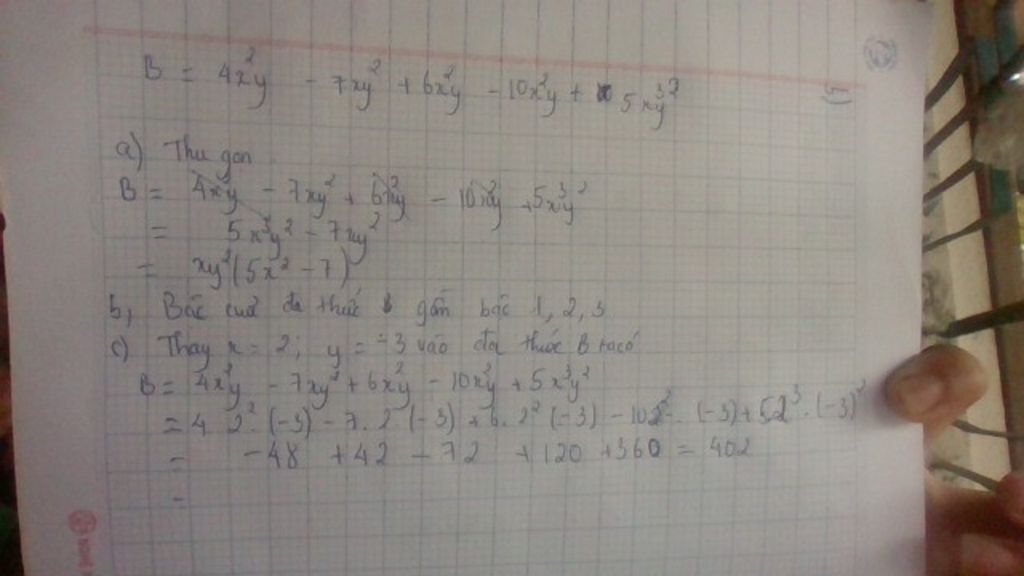 B = 4x²y - 7xy² + 6x²y - 10x²y + 5x³y²
a) Thu gọn
B = 4x²y - 7xy² + 6x²y - 10x²y + 5x³y²
= 5x³y² - 7xy²
= xy²(5x² - 7)
b, Bậc của đa thức B gồm bậc 1, 2, 3
c) Thay x = 2; y = -3 vào đa thức B ta có
B = 4x²y - 7xy² + 6x²y - 10x²y + 5x³y²
= 4 2² . (-3) - 7. 2 . (-3) + 6. 2² (-3) - 10 2² . (-3) + 5 2³ . (-3)²
= -48 + 42 - 72 + 120 + 360 = 402
=